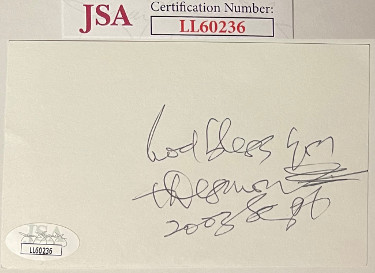 JSA
Certification Number:
LL60236
God bless you
+Desmon
2003 Sept
JSA
LL60236